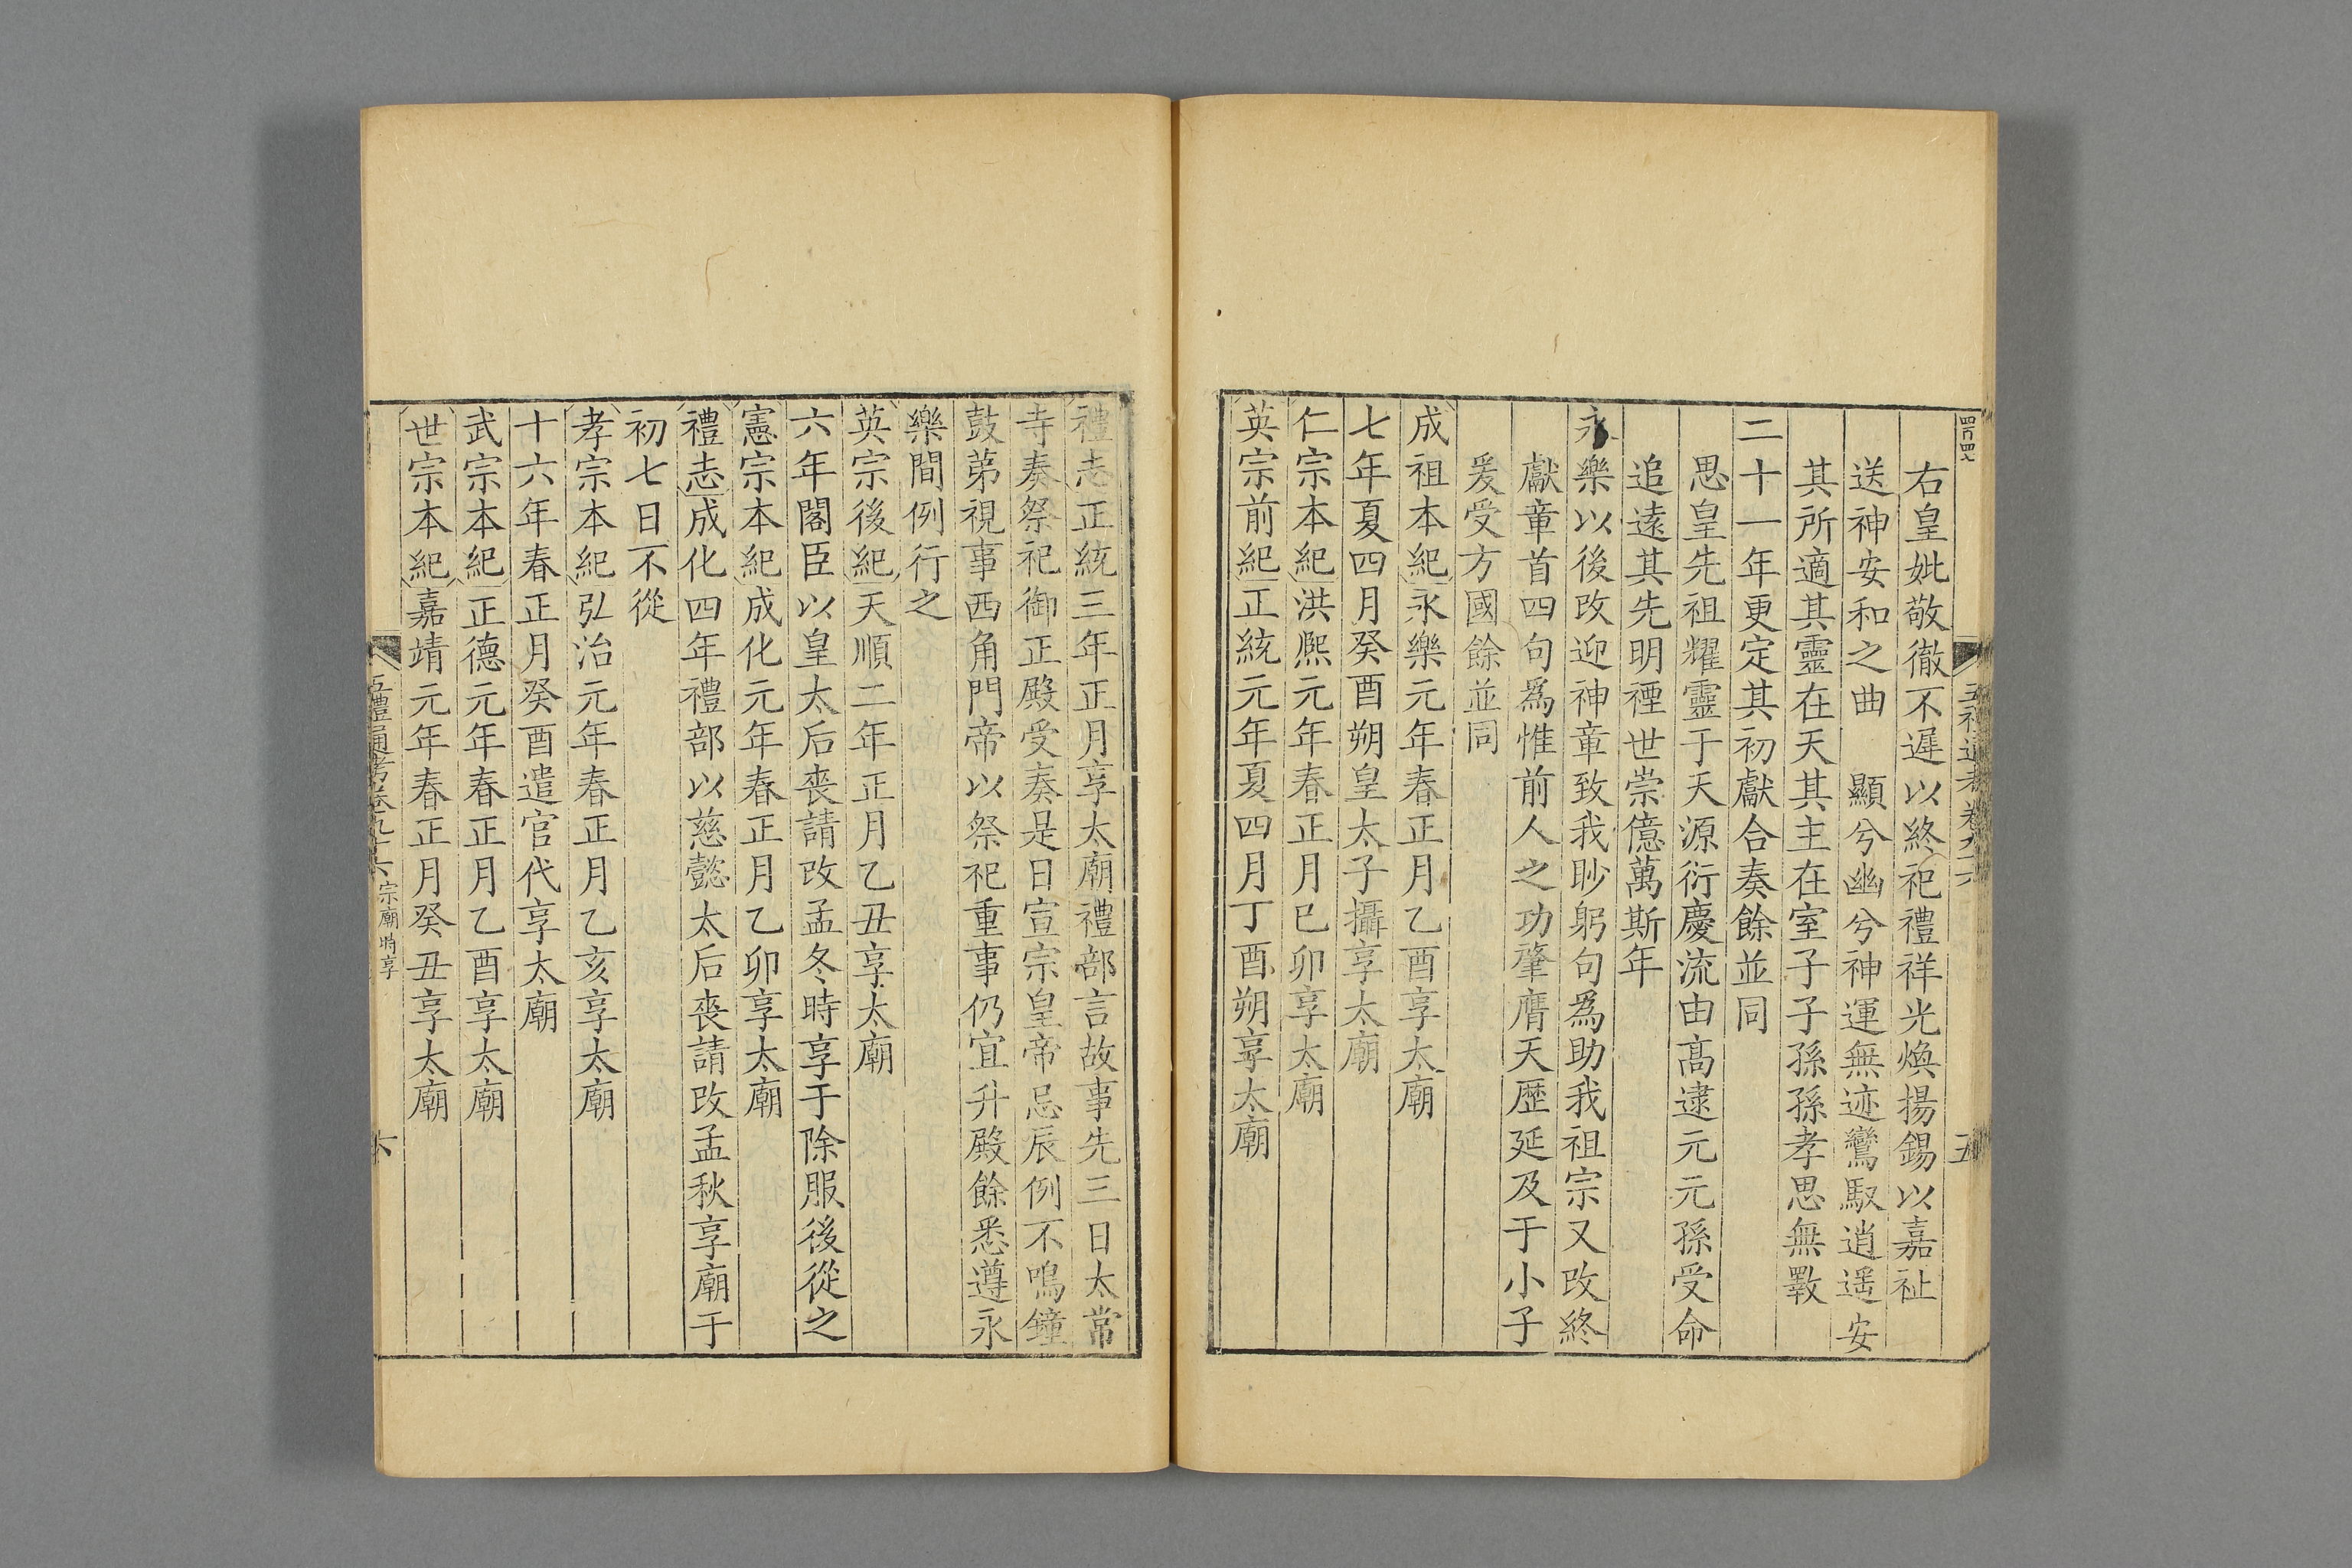 右皇妣敬徹不遲以終祀禮祥光煥揚錫以嘉祉
送神安和之曲　顯兮幽兮神運無迹鸞馭逍遥安
其所適其靈在天其主在室子子孫孫孝思無斁
二十一年更定其初獻合奏餘並同
思皇先祖耀靈于天源衍慶流由髙逮元元孫受命
追遠其先明禋世崇億萬斯年
永樂以後改迎神章致我眇躬句爲助我祖宗又改終
獻章首四句爲惟前人之功肇膺天歴延及于小子
爰受方國餘並同
成祖本紀永樂元年春正月乙酉享太廟
七年夏四月癸酉朔皇太子攝享太廟
仁宗本紀洪熈元年春正月已卯享太廟
英宗前紀正統元年夏四月丁酉朔享太廟
五禮通考卷九十六
五
四百四七
禮志正統三年正月享太廟禮部言故事先三日太常
寺奏祭祀御正殿受奏是日宣宗皇帝忌辰例不鳴鐘
鼓苐視事西角門帝以祭祀重事仍宜升殿餘悉遵永
樂間例行之
英宗後紀天順二年正月乙丑享太廟
六年閣臣以皇太后喪請改孟冬時享于除服後從之
憲宗本紀成化元年春正月乙卯享太廟
禮志成化四年禮部以慈懿太后喪請改孟秋享廟于
初七日不從
孝宗本紀弘治元年春正月乙亥享太廟
十六年春正月癸酉遣官代享太廟
武宗本紀正德元年春正月乙酉享太廟
世宗本紀嘉靖元年春正月癸丑享太廟
五禮通考卷九十六 宗廟時享
六